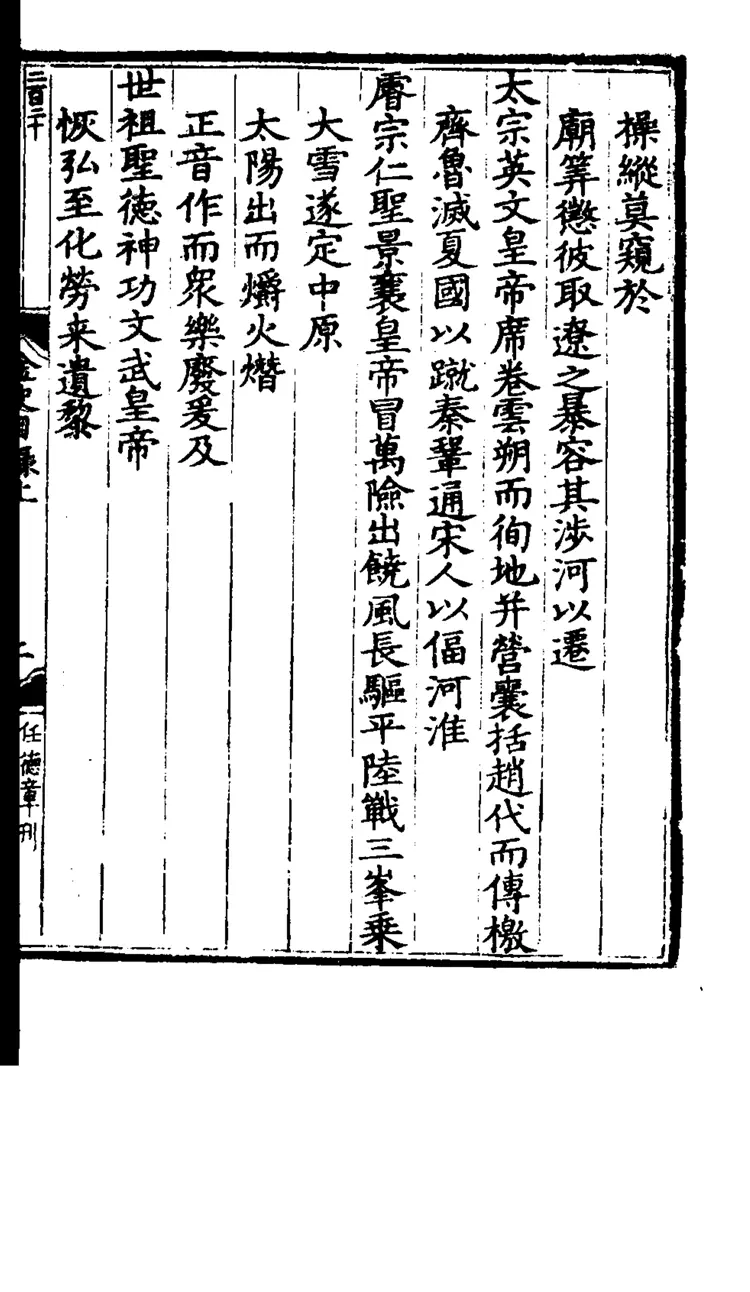 操縱莫窺於
廟筭懲彼取遼之暴容其涉河以遷
太宗英文皇帝席卷雲朔而徇地并營囊括趙代而傳檄
齊魯滅夏國以蹴秦鞏通宋人以偪河淮
睿宗仁聖景襄皇帝冒萬險出饒風長驅平陸戰三峯乗
大雪遂定中原
太陽出而爝火熸
正音作而衆樂廢爰及
世祖聖德神功文武皇帝
恢弘至化勞来遺黎
二百二十
金史目錄上
二
任德章刊